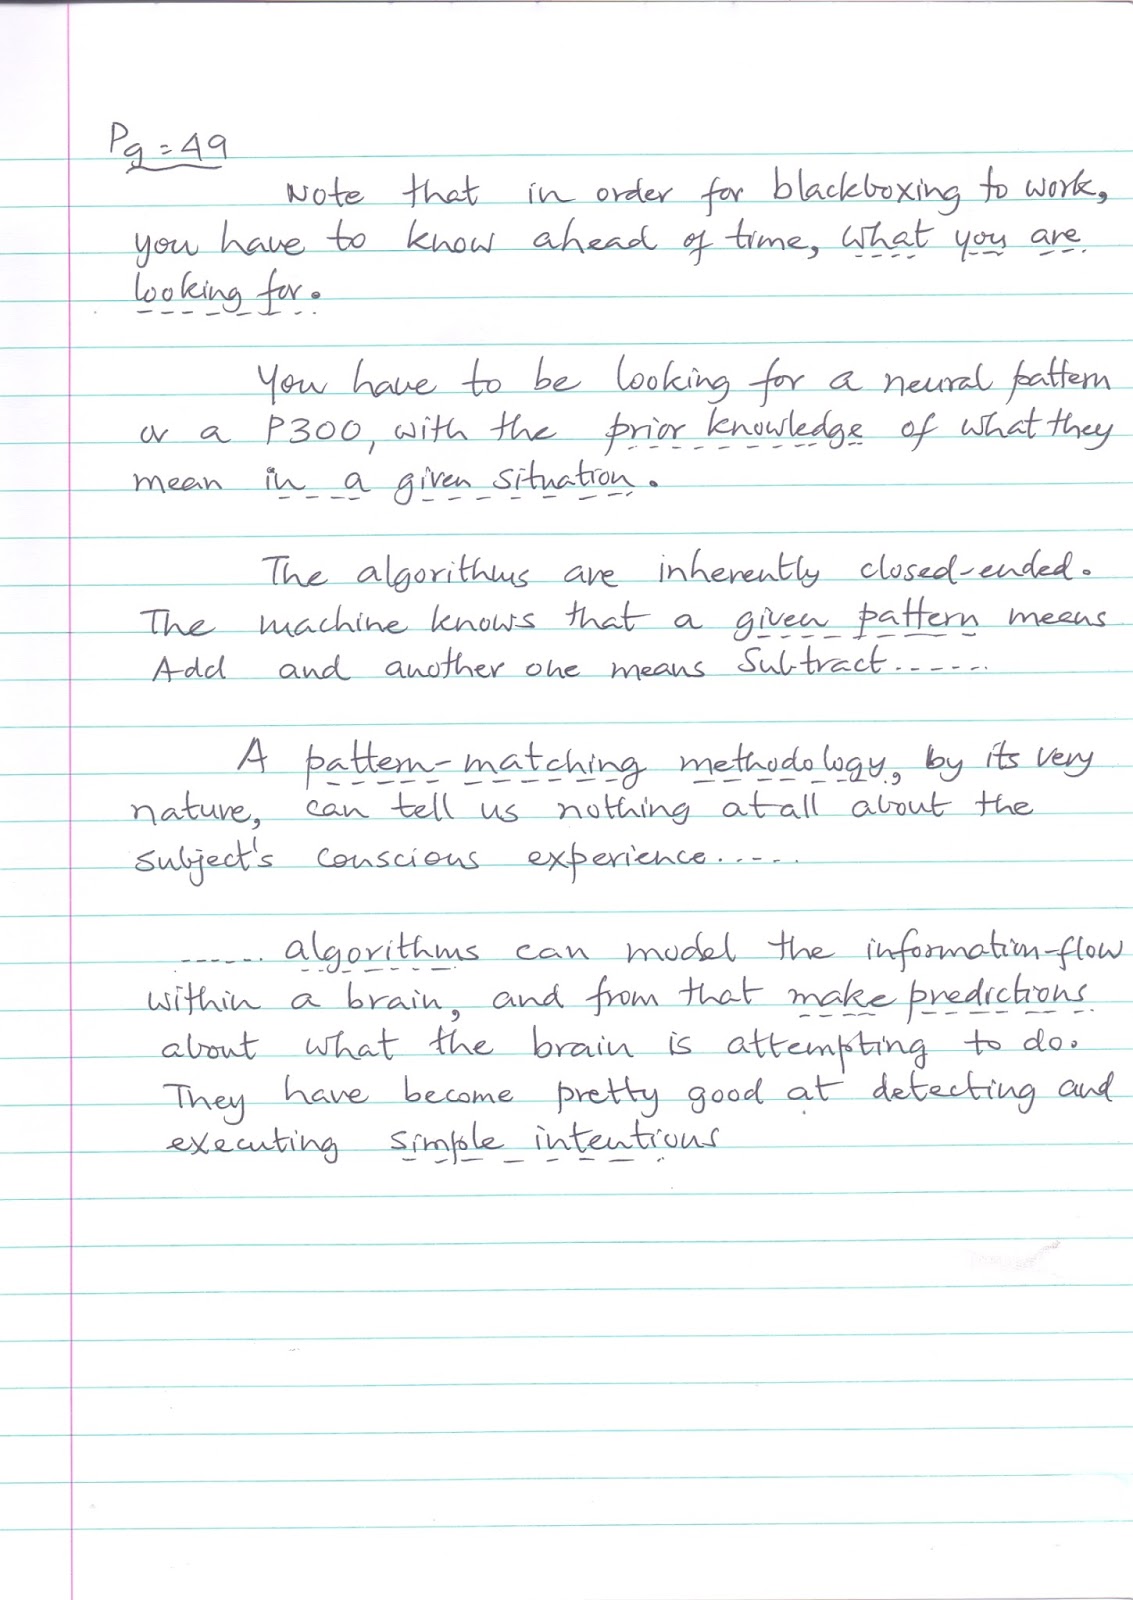 Pg = 49
Note that in order for blackboxing to work,
you have to know ahead of time, what you are
looking for.
You have to be looking for a neural pattern
or a P300, with the prior knowledge of what they
mean in a given situation.
The algorithms are inherently closed-ended.
The machine knows that a given pattern means
Add and another one means Subtract......
A pattern-matching methodology, by its very
nature, can tell us nothing at all about the
subject's conscious experience.....
...... algorithms can model the information-flow
within a brain, and from that make predictions
about what the brain is attempting to do.
They have become pretty good at detecting and
executing simple intentions